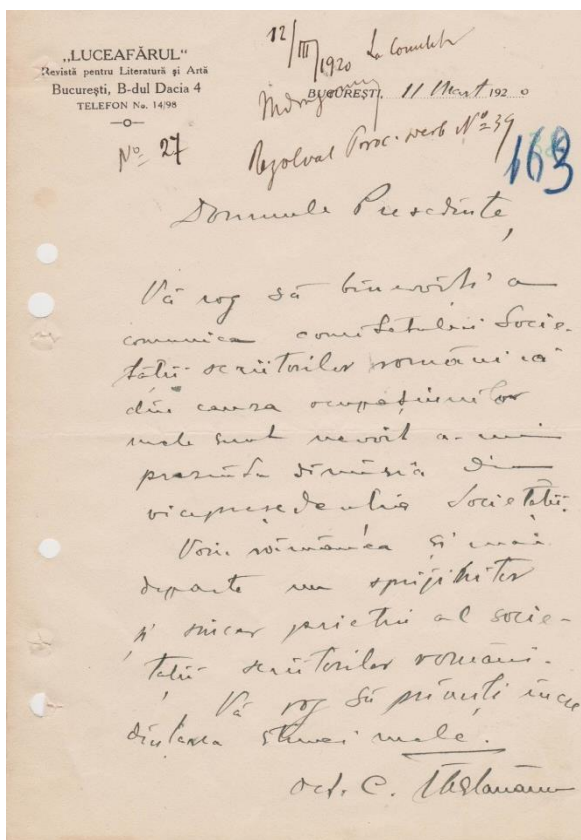 „LUCEAFĂRUL”
Revistă pentru Literatură și Artă
București, B-dul Dacia 4
TELEFON No. 14/98
No 27
12/III/1920 La Comitet
BUCUREȘTI, 11 Mart 1920
Rezolvat Proc. verb No 39
163
Domnule Președinte,
Vă rog să binevoiți a
comunica comitetului Socie-
tății scriitorilor români că
din cauza ocupațiunilor
mele sunt nevoit a-mi
prezinta dimisia din
vicepreședenția Societății.
Voiu rămânea și mai
departe un sprijinitor
și sincer prieten al socie-
tății scriitorilor români.
Vă rog să primiți încre
dințarea stimei mele.
Oct. C. Tăslăuanu